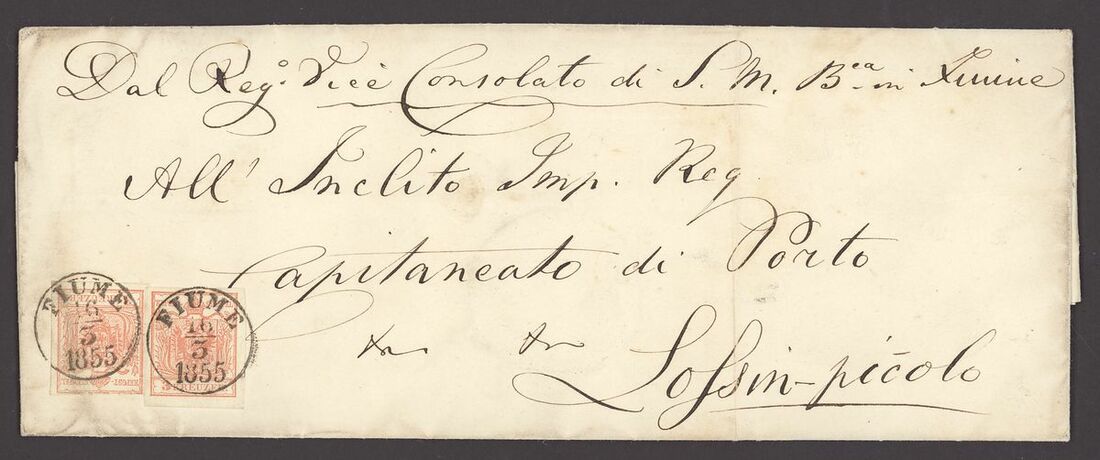 Dal Reg.º Vice Consolato di S. M. B.ca in Fiume
All' Inclito Imp. Reg
Capitaneato di Porto
Lossin-piccolo
FIUME
16
3
1855
FIUME
16
3
1855
3 KREUZER